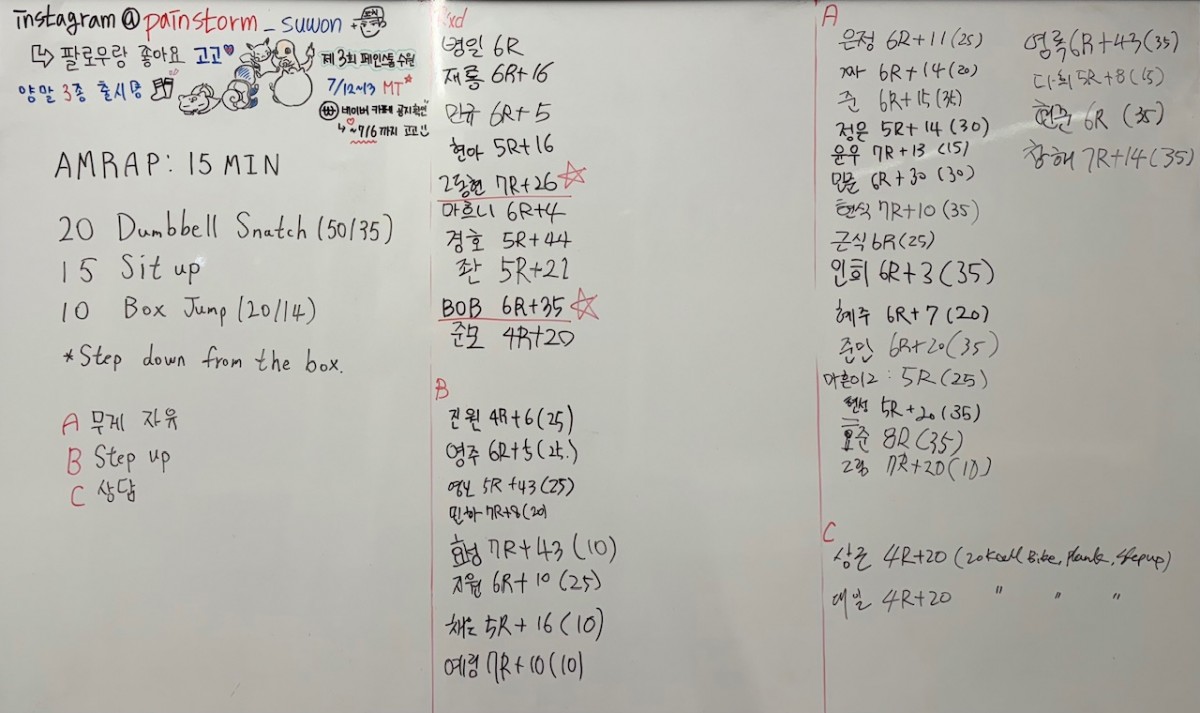 instagram @ painstorm_suwon
↳ 팔로우랑 좋아요 고고♥
양말 3종 출시
제 3회 페인스톰 수원
7/12~13 MT
네이버 카페 공지확인
↳ ~7/6 까지 고고
AMRAP: 15 MIN
20 Dumbbell Snatch (50/35)
15 Sit up
10 Box Jump (20/14)
*Step down from the box.
A 무게 자유
B Step up
C 상담
Rxd
병원 6R
재룡 6R+16
민규 6R+5
현아 5R+16
그동현 7R+26☆
마흐니 6R+4
경호 5R+44
좌 5R+21
BOB 6R+35☆
준모 4R+20
B
진원 4R+6(25)
영주 6R+5(25.)
5R+43(25)
민하 7R+8(20)
효성 7R+43(10)
지원 6R+10(25)
채은 5R+16(10)
예림 7R+10(10)
A
은정 6R+11(25)
6R+14(20)
준 6R+15(35)
정은 5R+14(30)
윤우 7R+13(15)
민준 6R+30(30)
현식 7R+10(35)
근식 6R(25)
인희 6R+3(35)
혜주 6R+7(20)
준민 6R+20(35)
마흔이2: 5R(25)
현성 5R+20(35)
효준 8R(35)
그림 7R+20(10)
영록 6R+43(35)
다희 5R+8(15)
현준 6R (35)
창해 7R+14(35)
C
상근 4R+20 (20kcal Bike, Plank, Step up)
대일 4R+20 〃 〃 〃